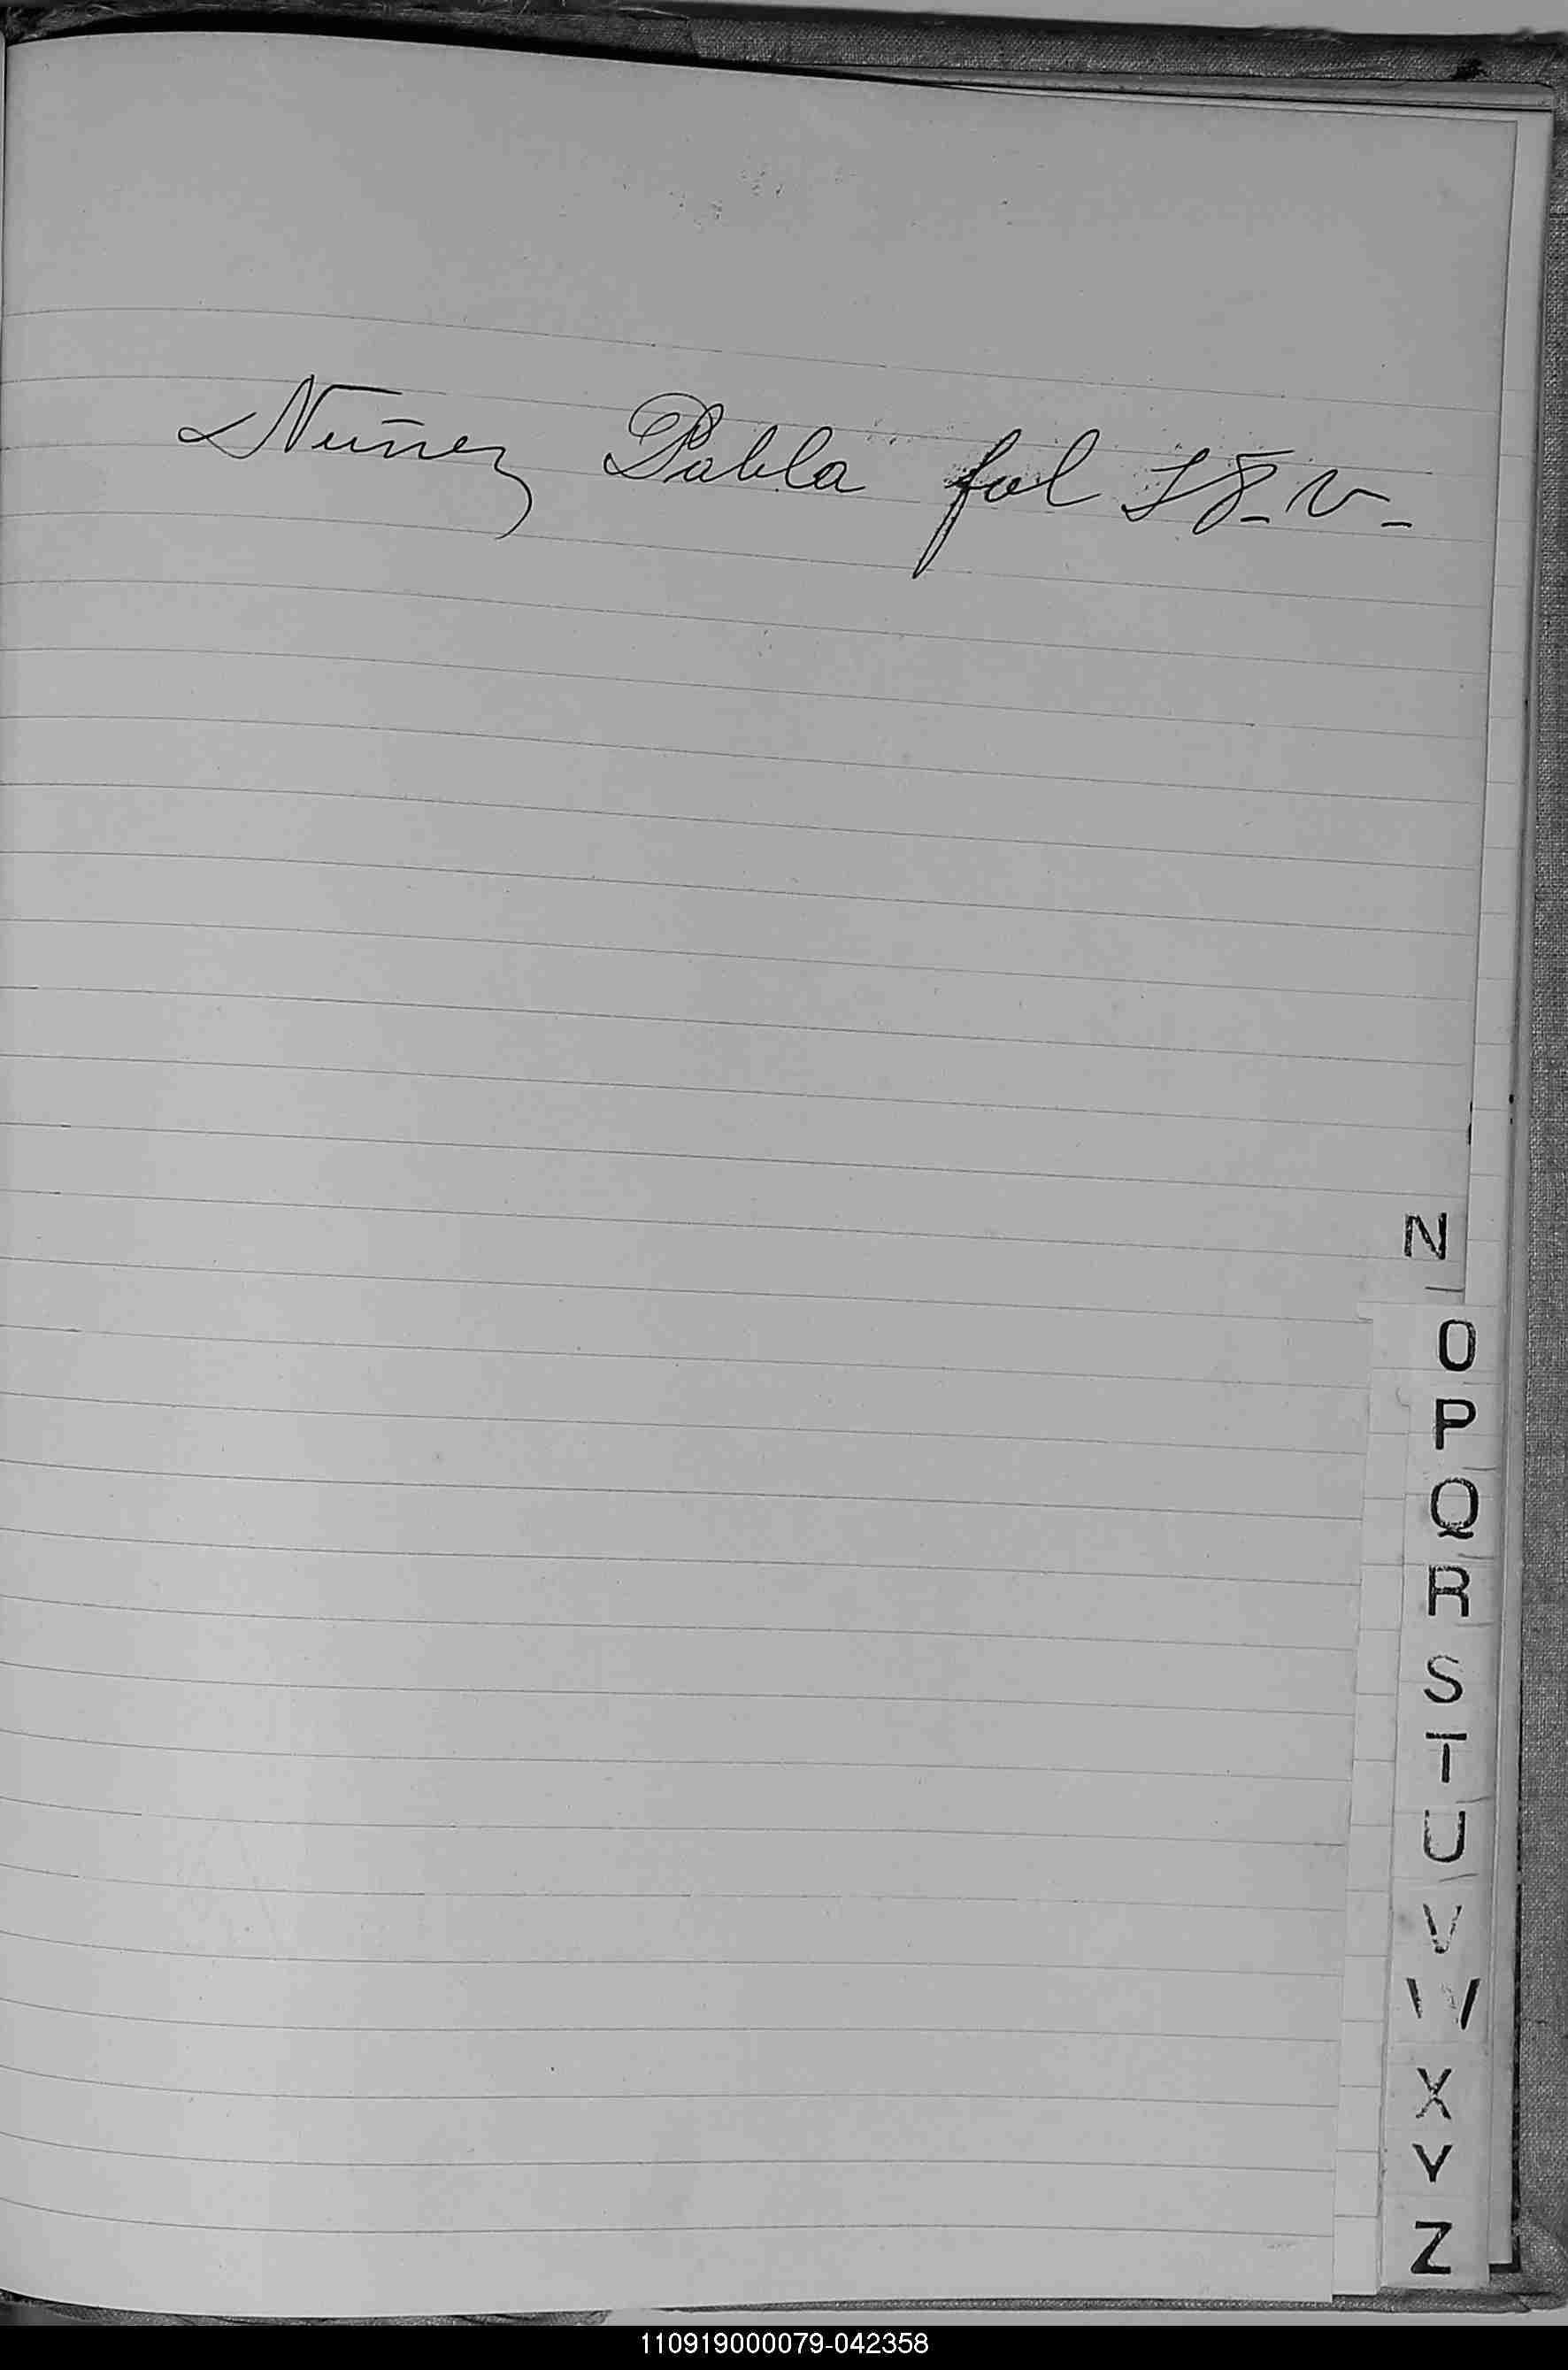 Nuñez Pabla fol 18-v-
N
O
P
Q
R
S
T
U
V
W
X
Y
Z
110919000079-042358